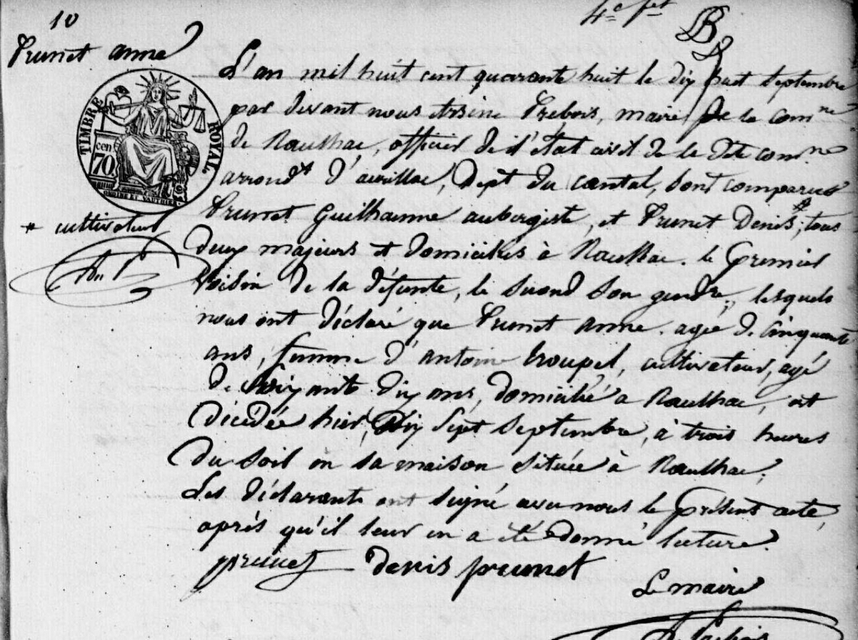 10
4e fet
Prunet anne
L'an mil huit cent quarante huit le dix huit septembre
par devant nous Trebois, maire de la comne
de Raulhac, officier de l'état civil de la dite comne
arrondt d'aurillac, dept du cantal, sont comparus
Prunet Guilhaume aubergiste, et Prunet Denis*, tous
deux majeurs et domiciliés à Raulhac. le premier
voisin de la défunte, le second son gendre, lesquels
nous ont déclaré que Prunet anne. agée de cinquante
ans, femme d'antoine troupel, cultivateur, agé
de soixante dix ans, domicilié à Raulhac, est
décédée hier, Dix Sept septembre, à trois heures
du soir en sa maison située à Raulhac,
Les déclarants ont signé avec nous le présent acte,
après qu'il leur en a été donné lecture.
prunet denis prunet
Le maire
TIMBRE ROYAL
cen
70
* cultivateur